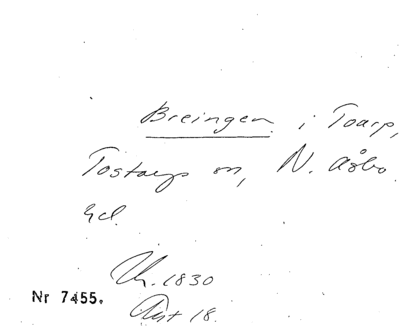 Breingen i Toarp,
Tostarps sn, N. Åsbo
hd.
Uk. 1830
Akt 18.
Nr 7455.